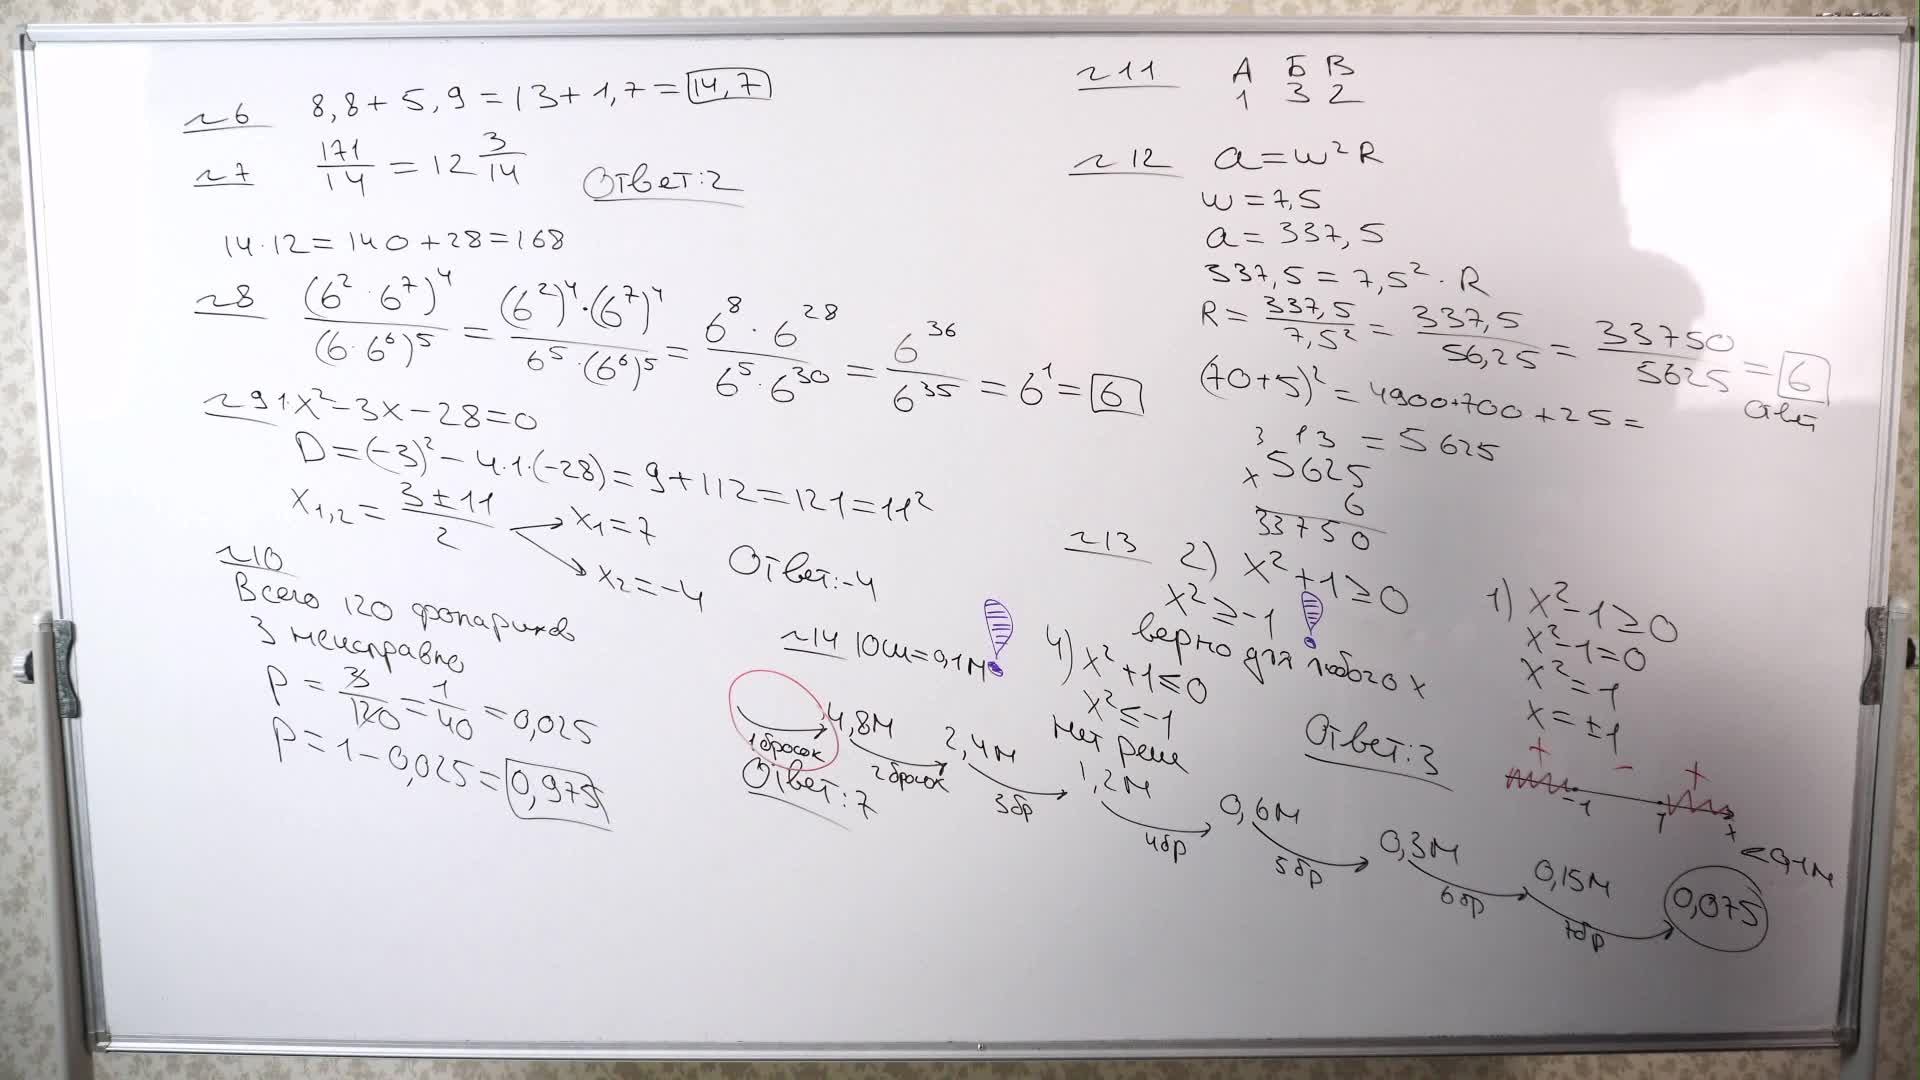 №6 8,8 + 5,9 = 13 + 1,7 = 14,7
№7 171/14 = 12 3/14 Ответ: 2
14·12 = 140 + 28 = 168
№8 (6²·6⁷)⁴/(6·6⁶)⁵ = (6²)⁴·(6⁷)⁴/6⁵·(6⁶)⁵ = 6⁸·6²⁸/6⁵·6³⁰ = 6³⁶/6³⁵ = 6¹ = 6
№9 1·x² - 3x - 28 = 0
D = (-3)² - 4·1·(-28) = 9 + 112 = 121 = 11²
x₁,₂ = 3 ± 11/2
x₁ = 7
x₂ = -4
Ответ: -4
№10
Всего 120 фонариков
3 неисправно
P = 3/120 = 1/40 = 0,025
P = 1 - 0,025 = 0,975
№11 А Б В
1 3 2
№12 a = w²R
w = 7,5
a = 337,5
337,5 = 7,5²·R
R = 337,5/7,5² = 337,5/56,25 = 33750/5625 = 6
Ответ
(70+5)² = 4900 + 700 + 25 =
= 5625
3 13
× 5625
6
33750
№13 2) x² + 1 ≥ 0
x² ≥ -1 !
верно для любого x
1) x² - 1 ≥ 0
x² - 1 = 0
x² = 1
x = ±1
+ - +
-1 1 x
4) x² + 1 ≤ 0
x² ≤ -1
нет реше
Ответ: 3
№14 10см = 0,1м !
4,8м 2,4м 1,2м 0,6м 0,3м 0,15м 0,075 < 0,1м
1 бросок 2 бросок 3 бр 4 бр 5 бр 6 бр 7 бр
Ответ: 7